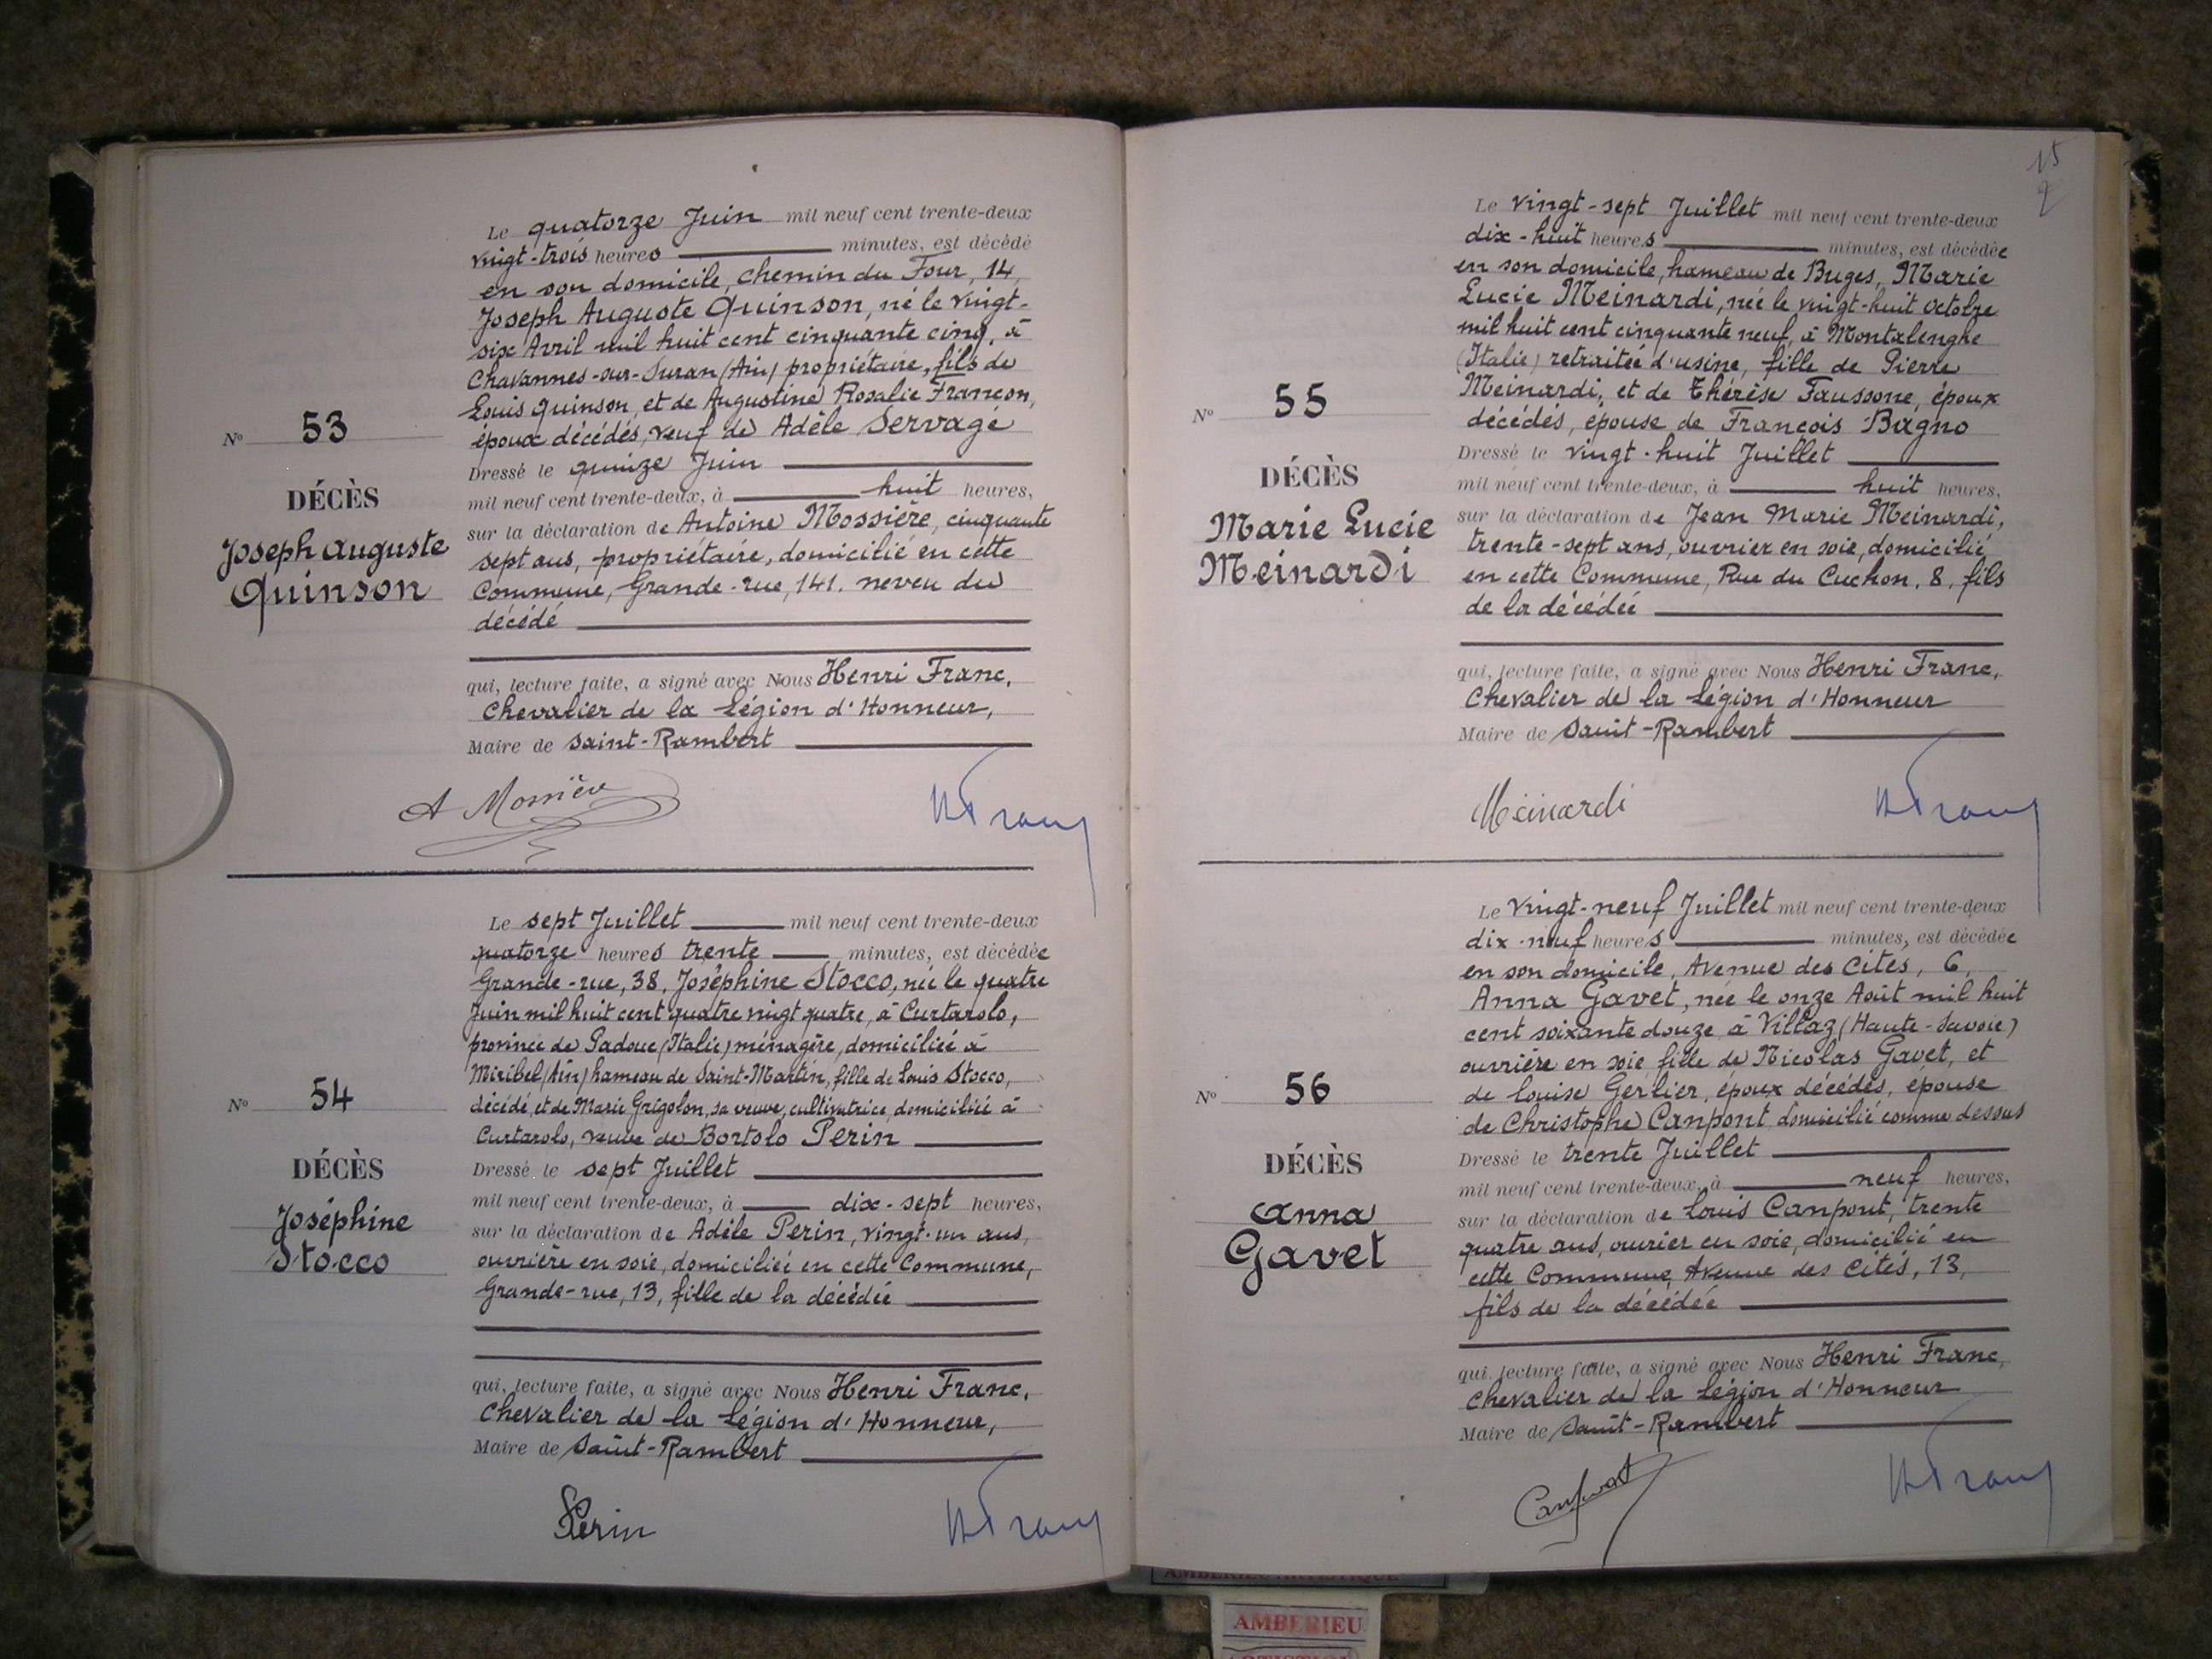 N° 53
DÉCÈS
Joseph Auguste
Quinson
Le quatorze Juin mil neuf cent trente-deux
vingt-trois heures minutes, est décédé
en son domicile, chemin du Four, 14,
Joseph Auguste Quinson, né le vingt-
six Avril mil huit cent cinquante cinq, à
Chavannes-sur-Suran (Ain) propriétaire, fils de
Louis Quinson, et de Augustine Rosalie Francon,
époux décédés, veuf de Adèle Servage
Dressé le quinze Juin
mil neuf cent trente-deux, à huit heures,
sur la déclaration de Antoine Mossière, cinquante
sept ans, propriétaire, domicilié en cette
Commune, Grande-rue, 141. neveu du
décédé
qui, lecture faite, a signé avec Nous Henri Franc,
Chevalier de la Légion d'Honneur,
Maire de Saint-Rambert
A Mossière
H Franc
N° 54
DÉCÈS
Joséphine
Stocco
Le sept Juillet mil neuf cent trente-deux
quatorze heures trente minutes, est décédée
Grande-rue, 38, Joséphine Stocco, née le quatre
Juin mil huit cent quatre vingt quatre, à Curtarolo,
province de Padoue (Italie) ménagère, domiciliée à
Miribel (Ain) hameau de Saint-Martin, fille de Louis Stocco,
décédé, et de Marie Grigolon, sa veuve, cultivatrice, domiciliée à
Curtarolo, veuve de Bortolo Perin
Dressé le sept Juillet
mil neuf cent trente-deux, à dix-sept heures,
sur la déclaration de Adèle Perin, vingt-un ans,
ouvrière en soie, domiciliée en cette Commune,
Grande-rue, 13, fille de la décédée
qui, lecture faite, a signé avec Nous Henri Franc,
Chevalier de la Légion d'Honneur,
Maire de Saint-Rambert
Perin
H Franc
15
N° 55
DÉCÈS
Marie Lucie
Meinardi
Le vingt-sept Juillet mil neuf cent trente-deux
dix-huit heures minutes, est décédée
en son domicile, hameau de Buges, Marie
Lucie Meinardi, née le vingt-huit Octobre
mil huit cent cinquante neuf, à Montalenghe
(Italie) retraitée d'usine, fille de Pierre
Meinardi, et de Thérèse Faussone, époux
décédés, épouse de François Bagno
Dressé le vingt-huit Juillet
mil neuf cent trente-deux, à huit heures,
sur la déclaration de Jean Marie Meinardi,
trente-sept ans, ouvrier en soie, domicilié
en cette Commune, Rue du Cuchon, 8, fils
de la décédée
qui, lecture faite, a signé avec Nous Henri Franc,
Chevalier de la Légion d'Honneur
Maire de Saint-Rambert
Meinardi
H Franc
N° 56
DÉCÈS
Anna
Gavet
Le vingt-neuf Juillet mil neuf cent trente-deux
dix-neuf heures minutes, est décédée
en son domicile, Avenue des Cités, 6,
Anna Gavet, née le onze Août mil huit
cent soixante douze à Villaz (Haute-Savoie)
ouvrière en soie, fille de Nicolas Gavet, et
de Louise Gerlier, époux décédés, épouse
de Christophe Canpont domicilié comme dessus
Dressé le trente Juillet
mil neuf cent trente-deux, à neuf heures,
sur la déclaration de Louis Canpont, trente
quatre ans, ouvrier en soie, domicilié en
cette Commune, Avenue des Cités, 13,
fils de la décédée
qui, lecture faite, a signé avec Nous Henri Franc,
Chevalier de la Légion d'Honneur
Maire de Saint-Rambert
Canpont
H Franc
AMBERIEU ARTISTIQUE
AMBERIEU